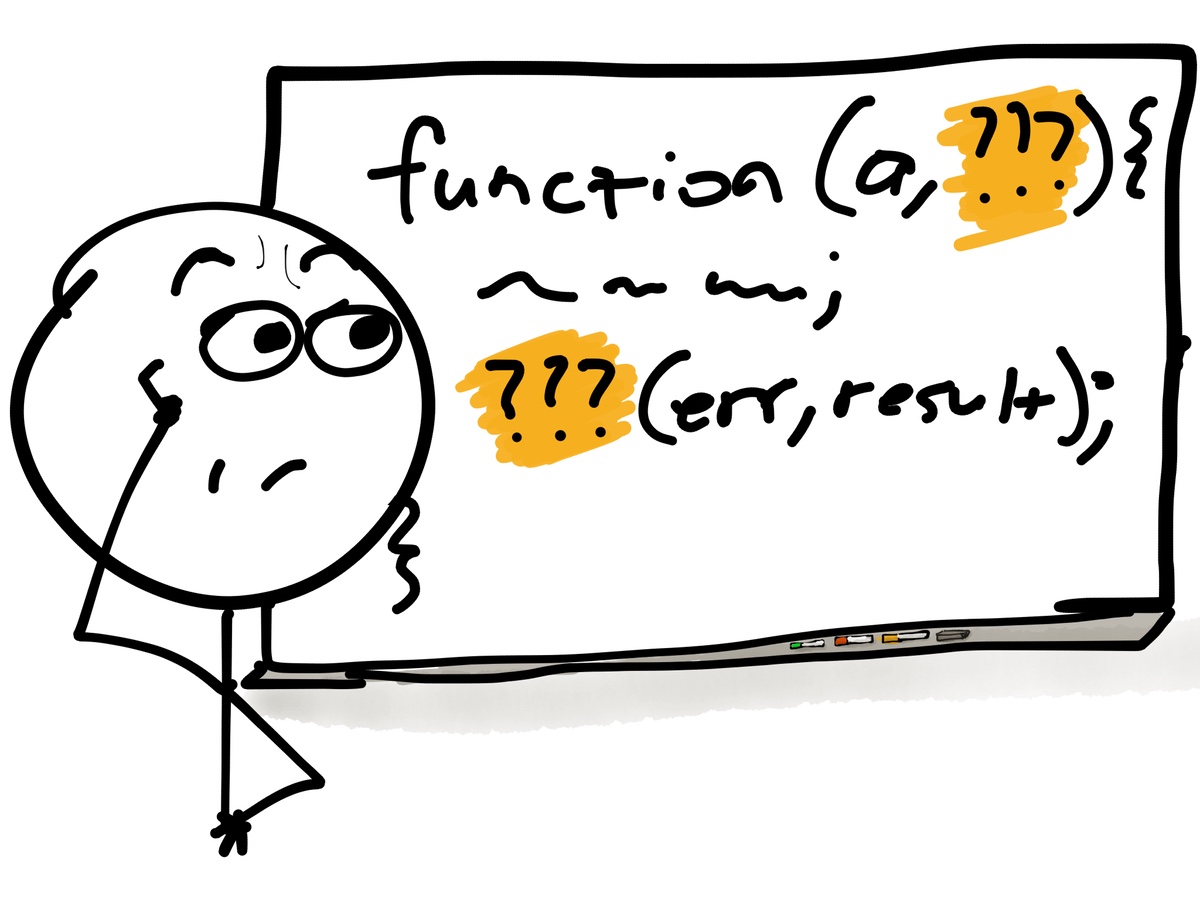 function (a, ???){
~ ~ ~;
???(err, result);
}